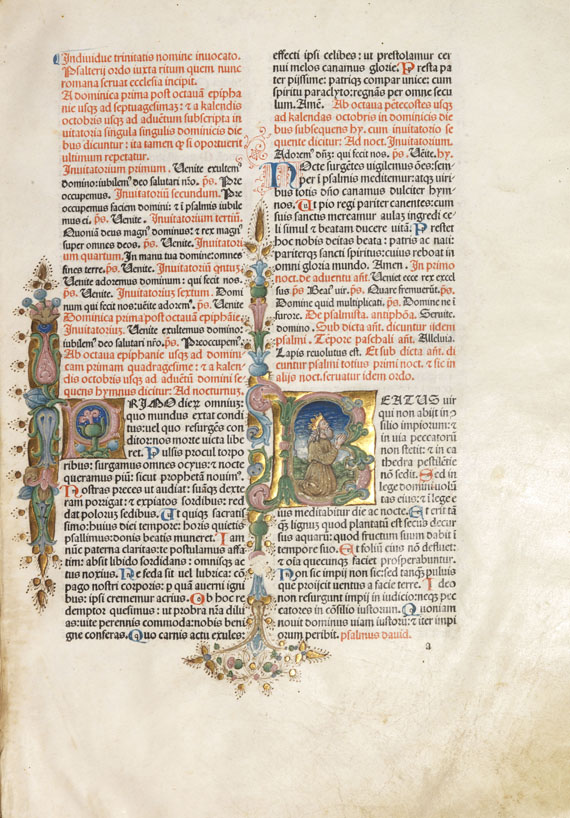 Individue trinitatis nomine inuocato.
Psalterij ordo iuxta ritum quem nunc
romana seruat ecclesia incipit.
A dominica prima post octauā epipha
nie usqȝ ad septuagesimaȝ: ⁊ a kalendis
octobris usqȝ ad aduētum subscripta in
uitatoria singula singulis dominicis die
bus dicuntur: ita tamen ꝙ si oportuerit
ultimum repetatur.
Inuitatorium primum. Uenite exultemꝰ
domino: iubilemꝰ deo salutari nřo. ps. Pre
occupemus. Inuitatoriū secundum. Pre
occupemus faciem domini: ⁊ i psalmis iubile
mus ei. ps. Uenite. Inuitatorium tertiū.
Quoniā deus magnꝰ dominus: ⁊ rex magnꝰ
super omnes deos. ps. Uenite. Inuitatori
um quartum. In manu tua domine: omnes
fines terre. ps. Uenite. Inuitatoriū qntuȝ.
Uenite adoremus dominum: qui fecit nos.
ps. Uenite. Inuitatorium sextum. Domi
num qui fecit nos: uēite adoremꝰ. ps. Uenite.
Dominica prima post octauā epiphāie.
Inuitatoriuȝ. Uenite exultemus domino:
iubilemꝰ deo salutari nřo. ps. Preoccupemꝰ.
Ab octaua epiphanie usqȝ ad domini
cam primam quadragesime: ⁊ a kalen
dis octobris usqȝ ad aduētū domini se
quens hymnus dicitur: Ad nocturnuȝ.
PRIMO dieȝ omniuȝ:
quo mundus extat condi
tus: uel quo resurgēs con
ditor: nos morte uicta libe
ret. Pulsis procul torpo
ribus: surgamus omnes ocyus: ⁊ nocte
queramus piū: sicut prophetā nouimꝰ.
Nostras preces ut audiat: suāqȝ dexte
ram porrigat: ⁊ expiatos sordibus: red
dat polorуȝ sedibus. Ut quiqȝ sacratis
simo: huius diei tempore: horis quietis
psallimus: donis beatis muneret. Iam
nūc paterna claritas: te postulamus affa
tim: absit libido sordidans: omnisqȝ ac
tus noxius. Ne feda sit uel lubrica: cō
pago nostri corporis: p quā auerni igni
bus: ipsi crememur acrius. Ob hoc re
demptor quesimus: ut probra nřa dilu
as: uite perennis commoda: nobis beni
gne conferas. Quo carnis actu exules:
effecti ipsi celibes: ut prestolamur cer
nui melos canamus glorie. Presta pa
ter pijssime: patriqȝ compar unice: cum
spiritu paraclyto: regnās per omne secu
lum. Amē. Ab octaua pētecostes usqȝ
ad kalendas octobris in dominicis die
bus subsequens hy. cum inuitatorio se
quente dicitur: Ad noct. Inuitatorium.
Adoremꝰ dn̄ȝ: qui fecit nos. ps. Uēite. hy.
NOcte surgētes uigilemus ōes: sem
per i psalmis meditemur: atqȝ uiri
bus totis dn̄o canamus dulciter hym
nos. Ut pio regi pariter canentes: cum
suis sanctis mereamur aulaȝ ingredi ce
li simul ⁊ beatam ducere uitā. Prestet
hoc nobis deitas beata: patris ac nati:
pariterqȝ sancti spiritus: cuius reboat in
omni gloria mundo. Amen. In primo
noct. de aduentu añt. Ueniet ecce rex excel
sus ps Beatꝰ uir. ps. Quare fremuerūt. ps.
Domine quid multiplicati. ps. Domine ne i
furore. De psalmista. antiphōa. Seruite.
domino. Sub dicta añt. dicuntur iidem
psalmi. Tēpore paschali añt. Alleluia.
Lapis reuolutus est. Et sub dicta añt. di
cuntur psalmi totius primi noct. ⁊ sic in
alijs noct. seruatur idem ordo.
BEATUS uir
qui non abijt in ↄ
silio impiorum: ⁊
in uia peccatorū
non stetit: ⁊ in ca
thedra pestilētie
nō sedit. Sed in
lege domini uolū
tas eius: ⁊ i lege e
ius meditabitur die ac nocte. Et erit tā
ꝙ lignuȝ quod plantatū est secus decur
sus aquarū: quod fructum suum dabit i
tempore suo. Et foliū eius nō defluet:
⁊ oīa quecunqȝ faciet prosperabuntur.
Non sic impij non sic: sed tanqȝ puluis
que proijcit uentus a facie terre. Ideo
non resurgunt impij in iudicio: neqȝ pec
catores in cōsilio iustorum. Quoniam
nouit dominus uiam iustorū: ⁊ iter impi
orum peribit. psalmus dauid.
a